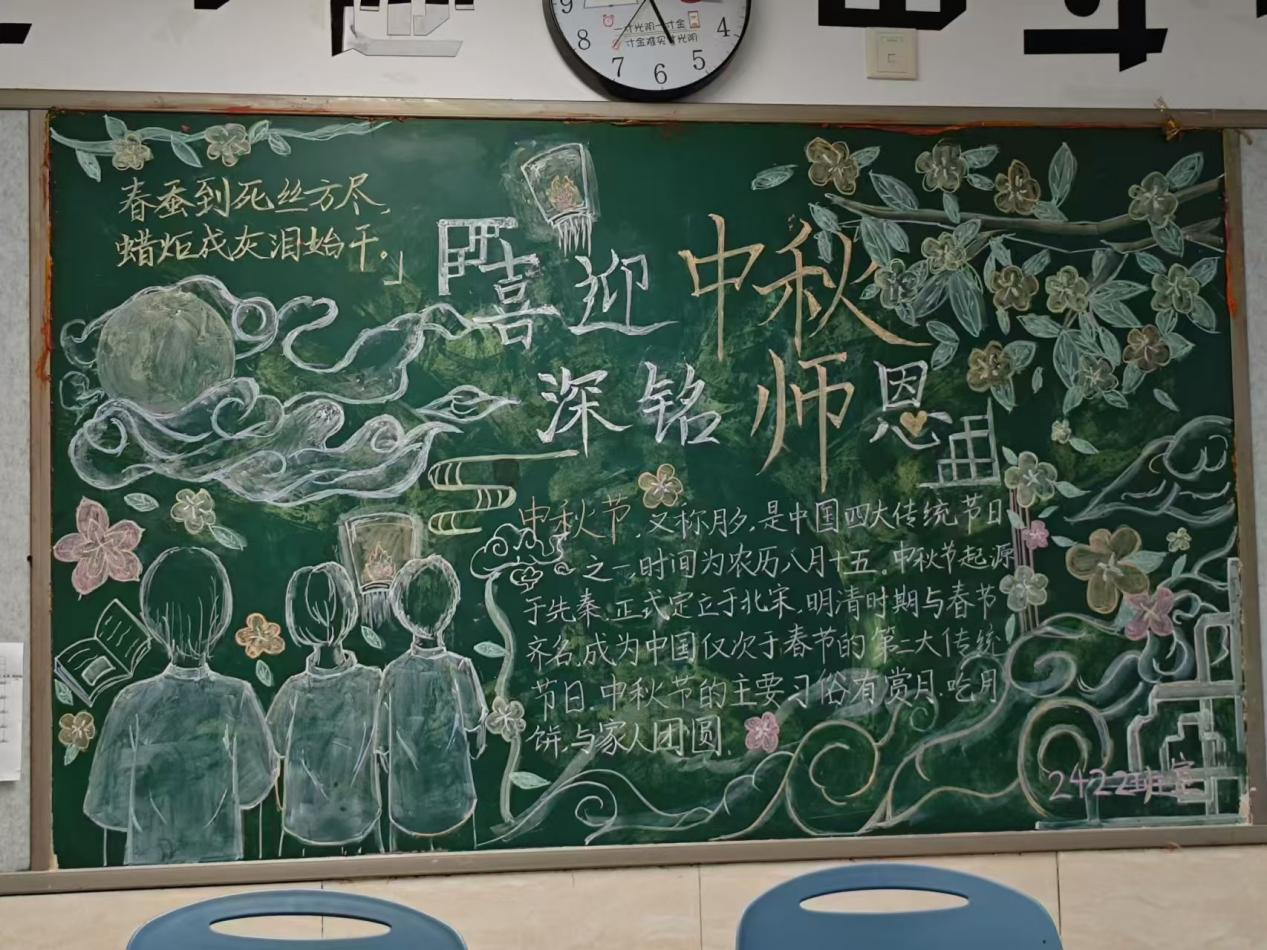 9
8
7
6
5
4
一寸光阴一寸金
寸金难买寸光阴
春蚕到死丝方尽,
蜡炬成灰泪始干。」
喜迎中秋
深铭师恩
中秋节,又称月夕,是中国四大传统节日
之一,时间为农历八月十五。中秋节起源
于先秦,正式定立于北宋,明清时期与春节
齐名,成为中国仅次于春节的第二大传统
节日 中秋节的主要习俗有赏月,吃月
饼,与家人团圆.
2422班宣